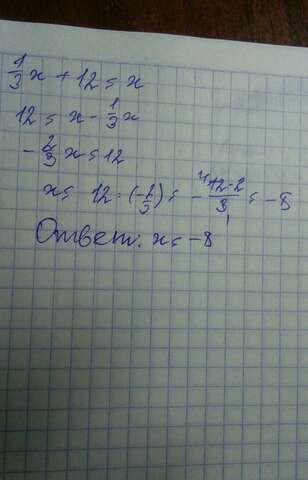 1/3 x + 12 = x
12 = x - 1/3 x
- 2/3 x = 12
x = 12 · (- 2/3) = - 4 12·2/3 1 = -8
Ответ: x = -8